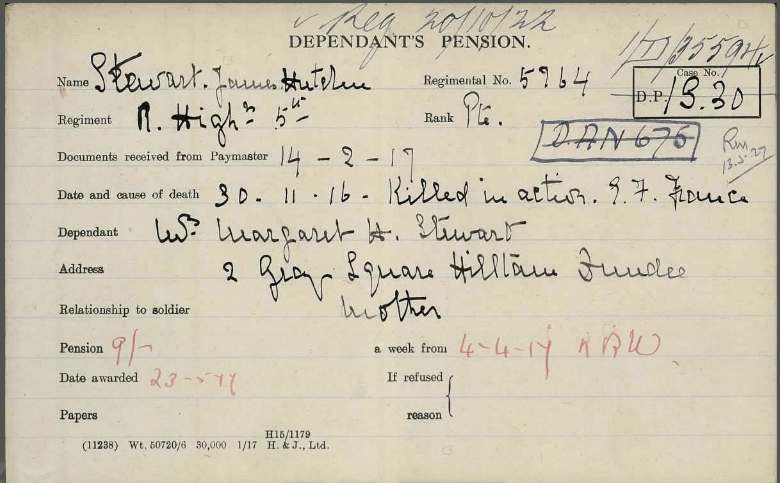 ✓ Reg 20/10/22
DEPENDANT'S PENSION.
Name Stewart. James Hutchin Regimental No. 5964
Case No./
D.P./ 13.30
Regiment R. Highrs 5th Rank Pte.
DAN 675
Documents received from Paymaster 14-2-17
13.5.27
Date and cause of death 30.11.16 - Killed in action. E.F. France
Dependant Mrs Margaret H. Stewart
Address 2 Gray Square Hilltown Dundee
Relationship to soldier Mother
Pension 9/- a week from 4-4-17
Date awarded 23-5-17 If refused
Papers reason
H15/1179
(11238) Wt. 50720/6 30,000 1/17 H. & J., Ltd.